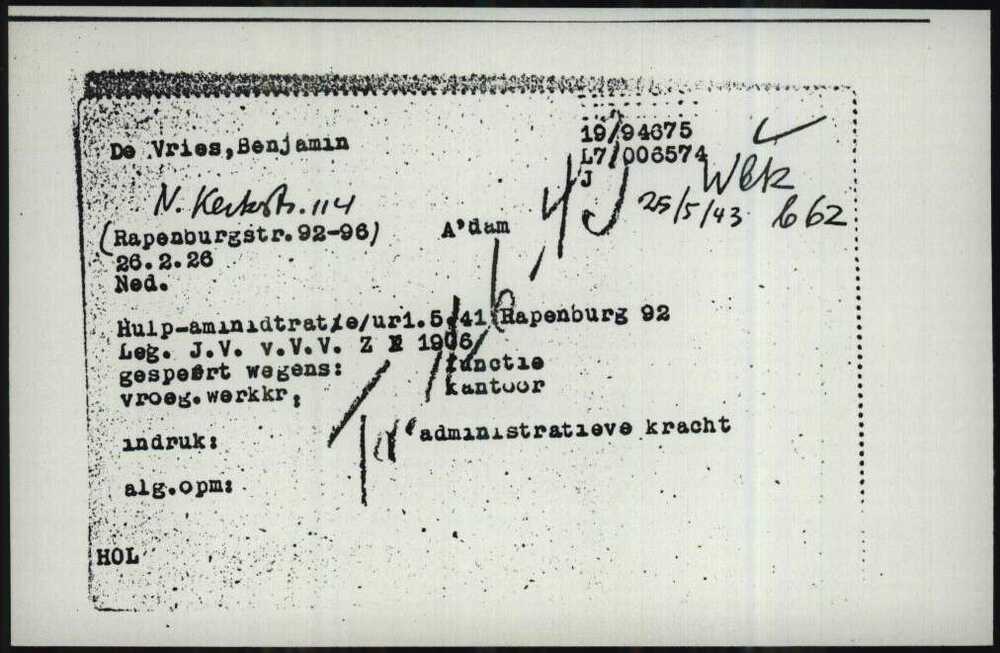 De Vries,Benjamin
19/94675
L7/006574
J
Wbk
25/5/43 b 62
N. Kerkstr. 114
(Rapenburgstr.92-96) A'dam
26.2.26
Ned.
Hulp-aminidtratie/uri.5.41 Rapenburg 92
Leg. J.V. v.V.V. Z 1906
gesperrt wegens: functie
vroeg.werkkr, kantoor
indruk: administratieve kracht
alg.opm:
HOL